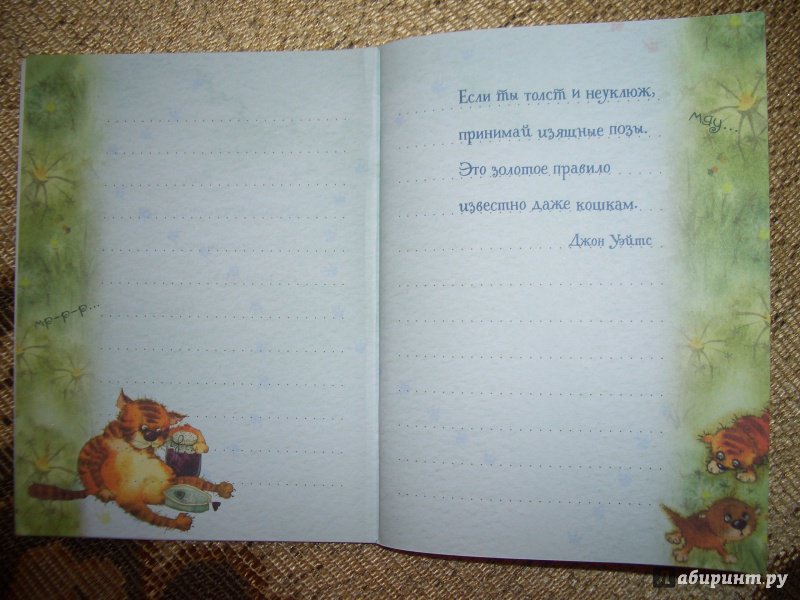 мр-р-р...
Если ты толст и неуклюж,
принимай изящные позы.
Это золотое правило
известно даже кошкам.
Джон Уэйтс
мяу...
Лабиринт.ру